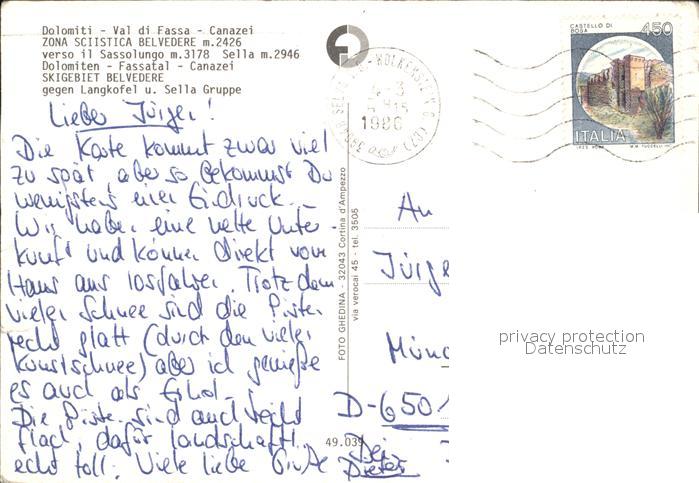 Dolomiti - Val di Fassa - Canazei
ZONA SCIISTICA BELVEDERE m.2426
verso il Sassolungo m.3178 Sella m.2946
Dolomiten - Fassatal - Canazei
SKIGEBIET BELVEDERE
gegen Langkofel u. Sella Gruppe
Lieber Jürgen!
Die Karte kommt zwar viel
zu spät, aber so bekommst Du
wenigstens einen Eindruck.
Wir haben eine nette Unter-
kunft und können direkt vom
Haus aus losfahren. Trotz dem
vielen Schnee sind die Pisten
recht glatt (durch den vielen
Kunstschnee) aber ich genieße
es auch als Erhol.
Die Pisten sind auch recht
flach, dafür landschaftl.
echt toll. Viele liebe Grüße
Dein
Dieter
FOTO GHEDINA - 32043 Cortina d'Ampezzo
via verocai 45 - tel. 3505
49.039
WOLKENST
1986
CASTELLO DI
BOSA
450
ITALIA
An
Jürge
Münc
D-6501
privacy protection
Datenschutz